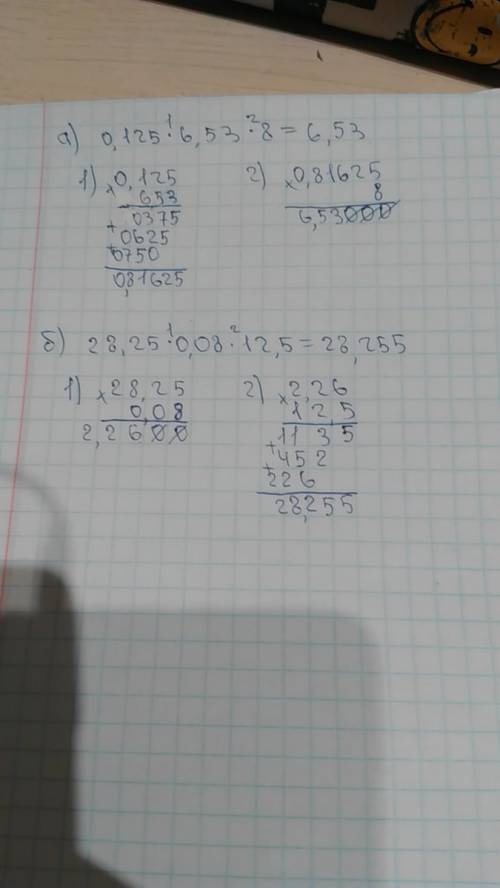 а) 0,125 ·¹ 6,53 ·² 8 = 6,53
1) × 0,125
653
+ 0375
+ 0625
0750
0,81625
2) × 0,81625
8
6,53000
б) 28,25 ·¹ 0,08 ·² 12,5 = 28,255
1) × 28,25
0,08
2,2600
2) × 2,26
12,5
+ 1135
+ 452
226
28,255